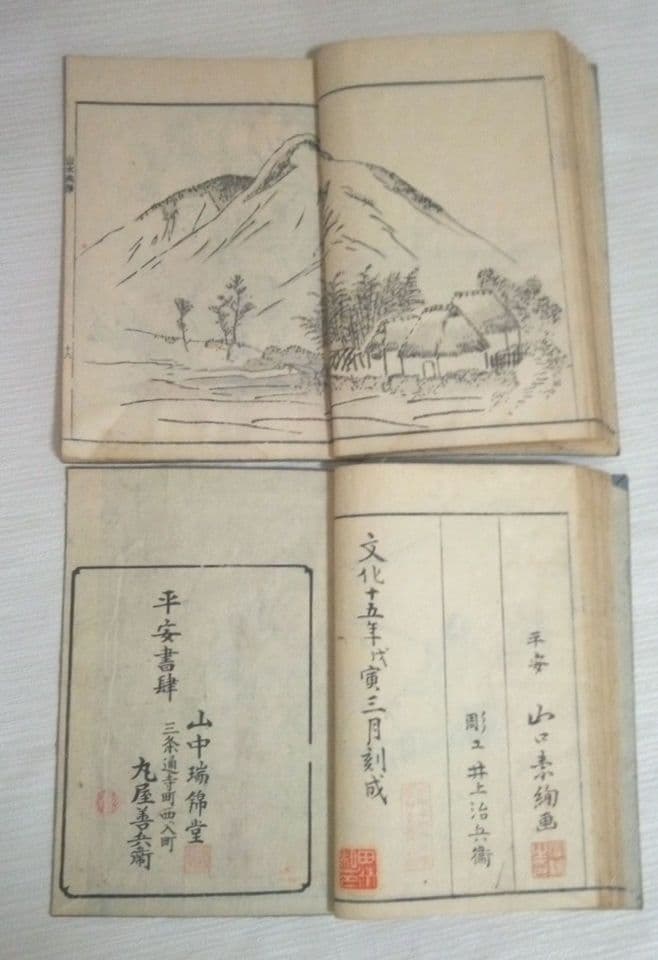 十八
平安 山口素絢画
彫工 井上治兵衞
文化十五年戊寅三月刻成
平安書肆
山中瑞錦堂
三条通寺町西入町
丸屋善兵衞